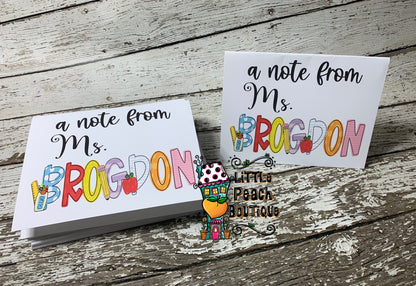 a note from
Ms.
BROGDON
a note from
Ms.
BROGDON
Little
Peach
Boutique